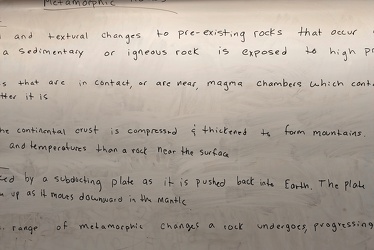 Metamorphic
and textural changes to pre-existing rocks that occur
a sedimentary or igneous rock is exposed to high pr
s that are in contact, or are near, magma chambers which cont
tter it is
he continental crust is compressed & thickened to form mountains.
and temperatures than a rock near the surface
ed by a subducting plate as it is pushed back into Earth. The plate
up as it moves downward in the mantle
range of metamorphic changes a rock undergoes, progressing